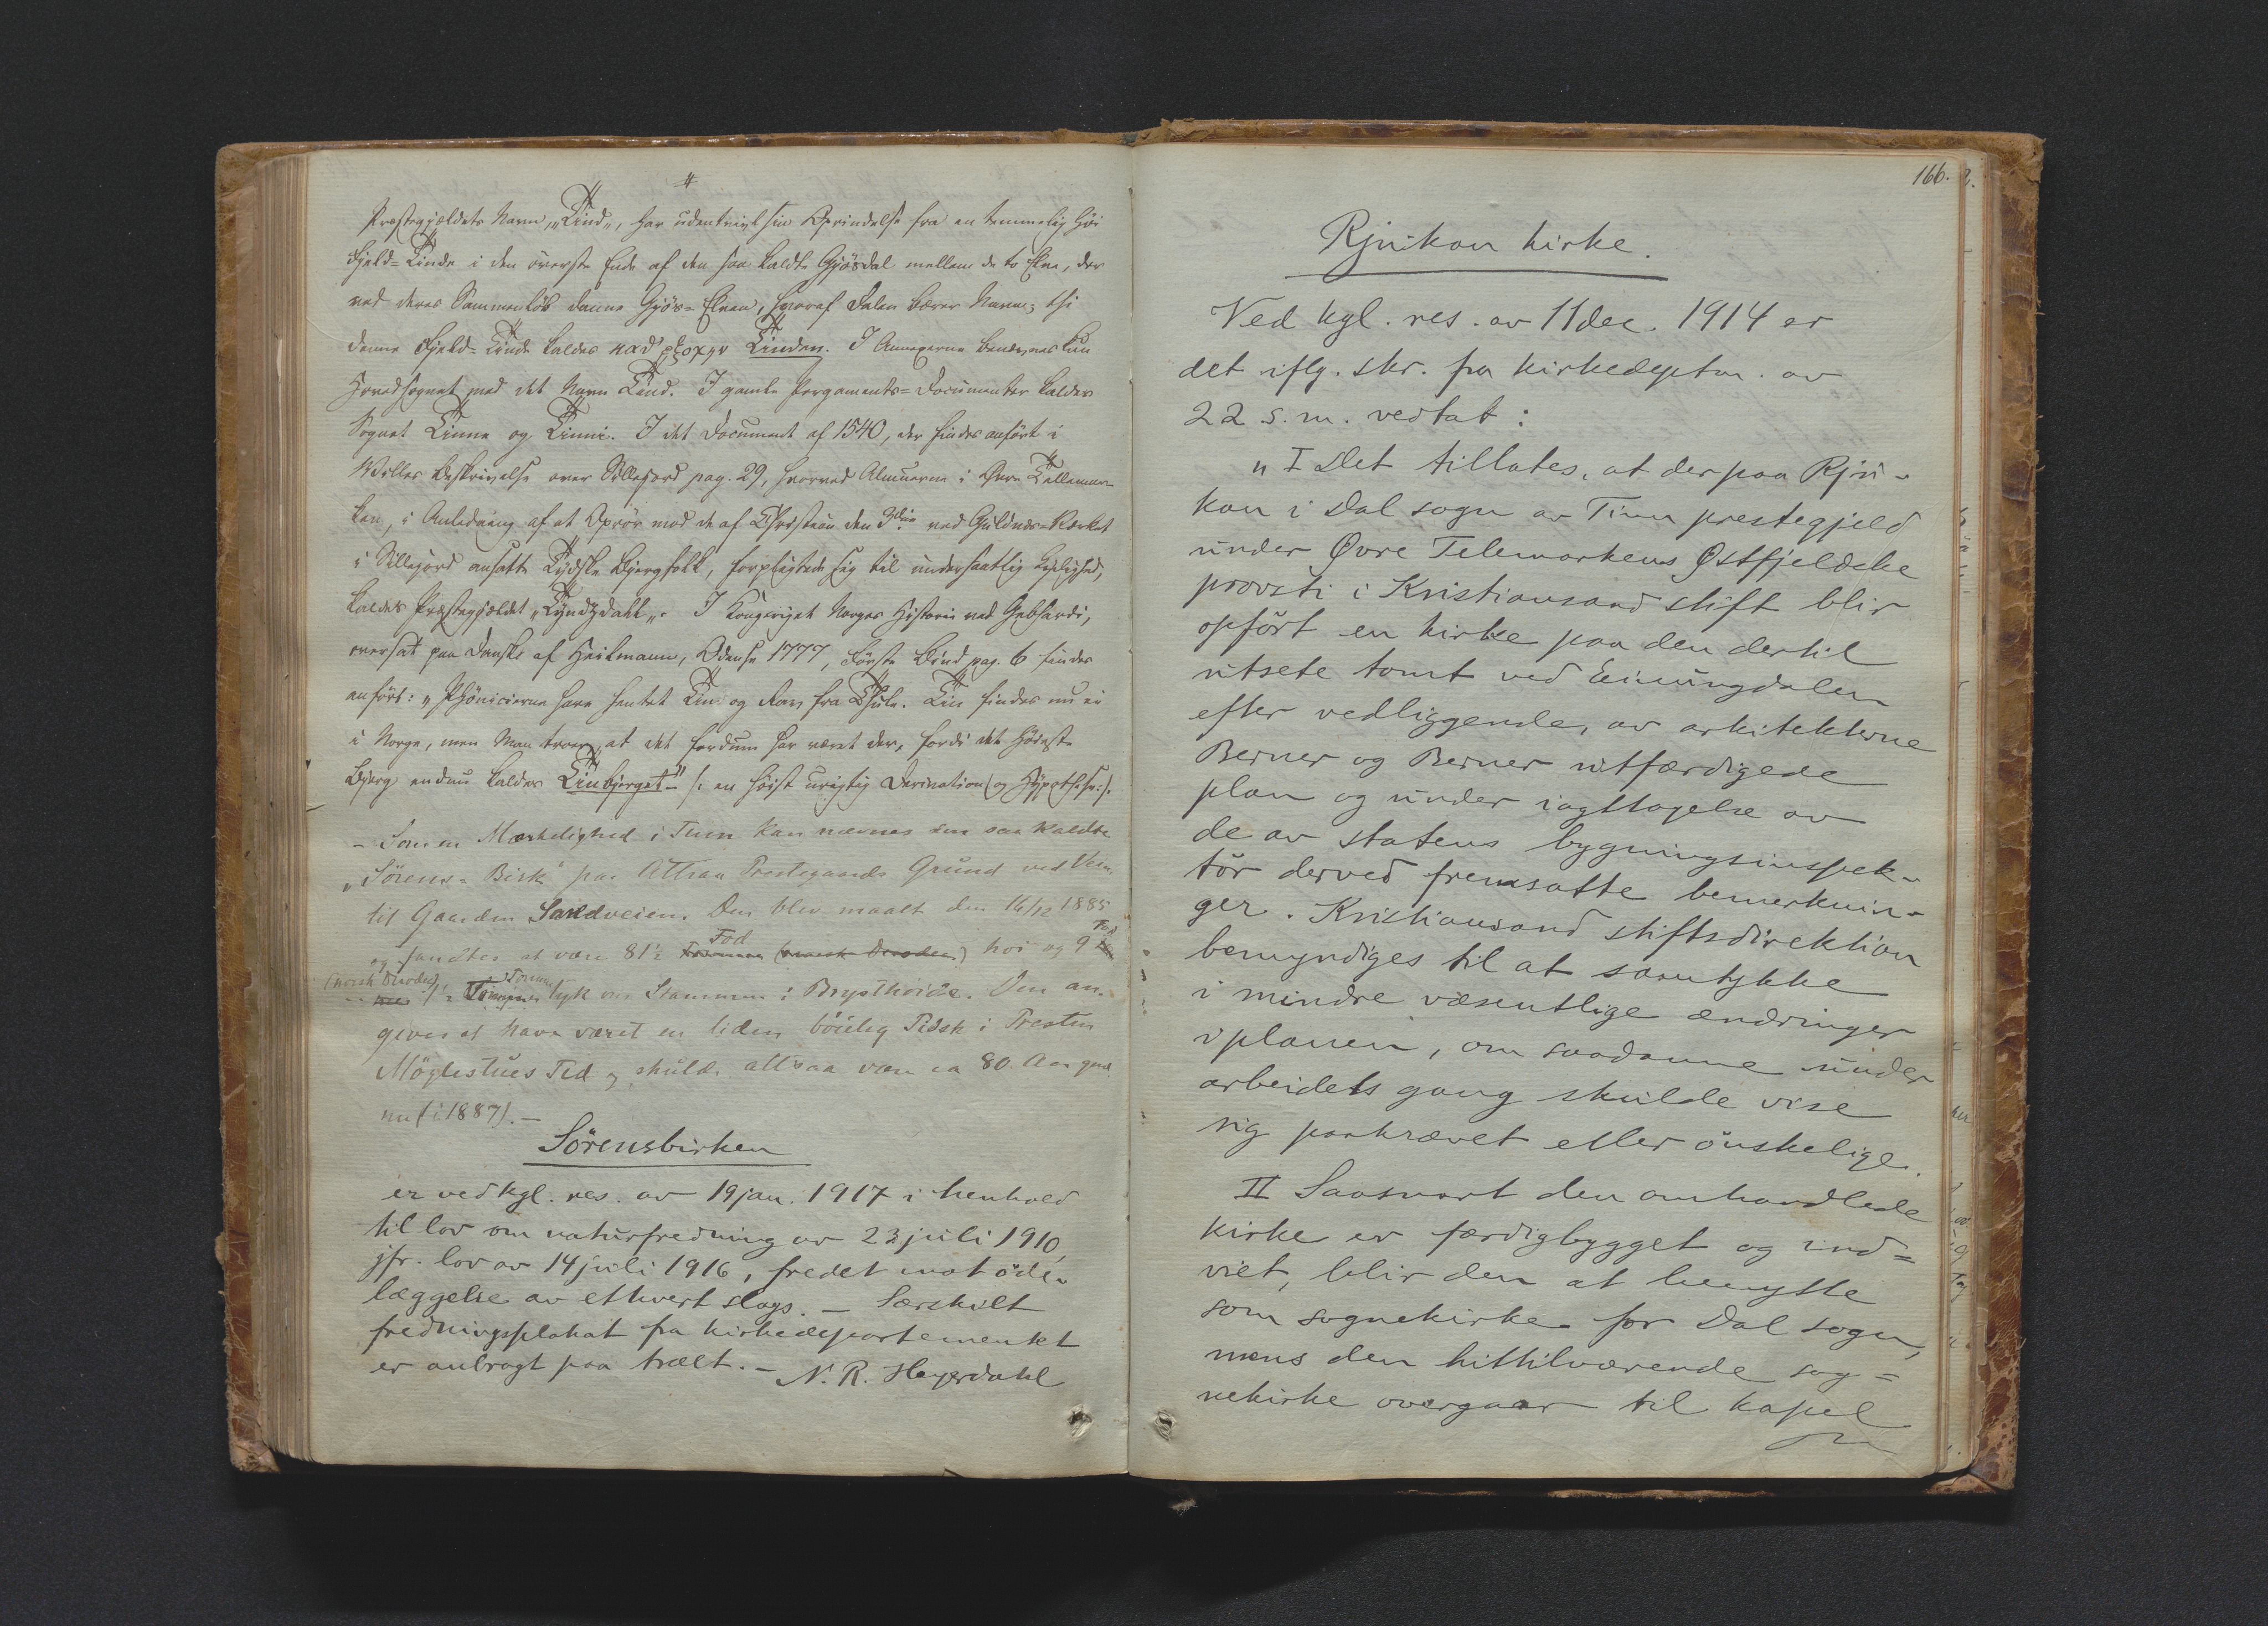 #
Præstegjældets Navn, „Tind„, har udentvivl sin Oprindelse fra en temmelig høi
Fjeld=Tinde i den øverste Ende af den saa kaldte Gjøsdal mellem de to Elve, der
ved deres Sammenløb danne Gjøs=Elven, hvoraf Dalen bærer Navn; thi
denne Fjeld=Tinde kaldes κατ' εξοχην Tinden. I Annexerne benævnes kun
Hovedsognet med det Navn Tind. I gamle Pergaments=Documenter kaldes
Sognet Tinne og Tinni. I det Document af 1540, der findes anført i
Willes Beskrivelse over Sillejord pag. 29, hvorved Almuerne i Øvre Tellemar=
ken, i Anledning af et Oprør mod de af Christian den 3die ved Guldnes=Værket
i Sillejord ansatte Tydske Bjergfolk, forpligtede sig til undersaatlig Lydighed,
kaldes Præstegjældet „Tyndzdall„. I Kongeriget Norges Historie ved Gebhardi,
oversat paa Danske af Heilmann, Odense 1777, Første Bind pag. 6 findes
anført: „Phønicierne have hentet Tin og Rav fra Thule. Tin findes nu ei
i Norge, men Man troer, at det fordum har været der, fordi det høieste
Bjerg endnu kaldes Tinbjerget" /: en høist urigtig Derivation (og Hypothese :/.
- Som en Mærkelighed i Tinn kan nævnes den saa kaldte
„Sörens=Birk" paa Attraa Prestegaards Grund ved Veien
til Gaarden Sandveien. Den blev maalt den 16/12 1885
og fandtes at være 81½ Fod høi og 9 Fod
(norsk Decades) Tomme tyk om Stammen i Brysthöide. Den an-
gives at have været en liden böielig Pidsk i Presten
Möglestues Tid og skulde altsaa være ca 80 Aar gml.
nu (i 1887).-
Sörensbirken
er ved kgl. res. av 19 jan. 1917 i henhold
til lov om naturfredning av 23 juli 1910,
jfr. lov av 14 juli 1916, fredet mot öde-
læggelse av ethvert slags. - Særskilt
fredningsplakat fra kirkedepartementet
er anbragt paa træet. - N. R. Heyerdahl
166.
Rjukan kirke.
Ved kgl. res. av 11 dec. 1914 er
det iflg. skr. fra kirkedeptm. av
22 s.m. vedtat:
„I Det tillates, at der paa Rju-
kan i Dal sogn av Tinn prestegjeld
under Øvre Telemarkens Østfjeldske
provsti i Kristiansand stift blir
opfört en kirke paa den dertil
utsete tomt ved Einungdalen
efter vedliggende, av arkitekterne
Berner og Berner utfærdigede
plan og under iagttagelse av
de av statens bygningsinspek-
tör derved fremsatte bemerknin-
ger. Kristiansand stiftsdirektion
bemyndiges til at samtykke
i mindre væsentlige ændringer
i planen, om saadanne under
arbeidets gang skulde vise
sig paakrævet eller önskelige.
II Saasnart den omhandlede
kirke er færdigbygget og ind=
viet, blir den at benytte
som sognekirke for Dal sogn,
mens den hittilværende sog=
nekirke overgaar til kapel